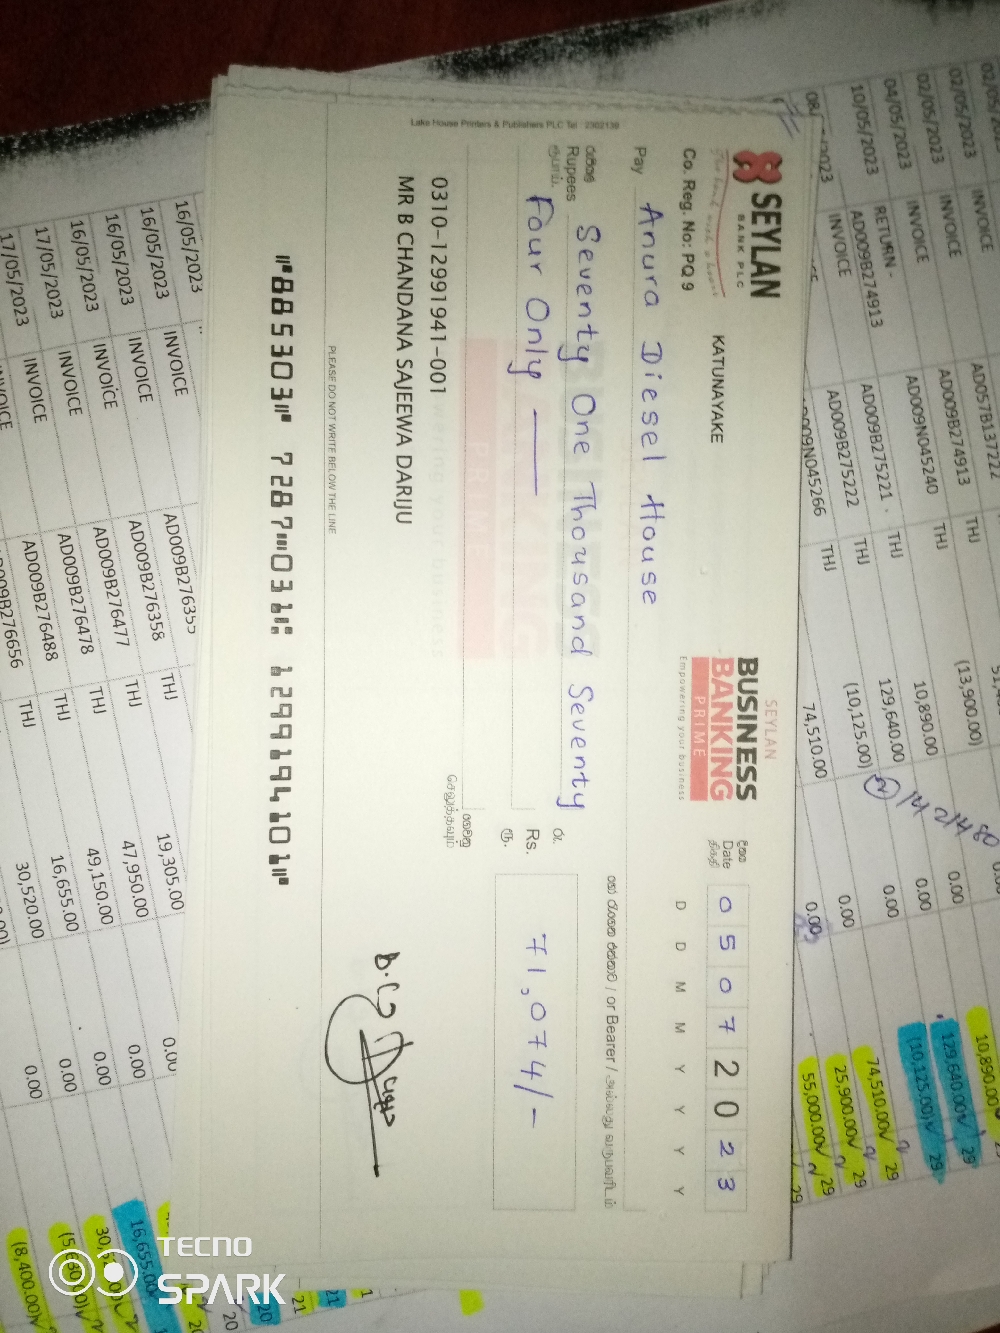 Lake House Printers & Publishers PLC Tel : 2302138
SEYLAN
BANK PLC
Co. Reg. No: PQ 9
KATUNAYAKE
SEYLAN
BUSINESS
BANKING
PRIME
Empowering your business
දිනය
Date
திகதி
0 5 0 7 2 0 2 3
D D M M Y Y Y Y
Pay Anura Diesel House
or Bearer
රුපියල්
Rupees Seventy One Thousand Seventy
ரூபாய்
Four Only
රු.
RS. 71,074/-
ரூ.
0310-1299141-001
MR B CHANDANA SAJEEWA DARIJU
B.C
PLEASE DO NOT WRITE BELOW THE LINE
⑈885303⑈ 7287⑉031⑆ 1299194101⑈
02/05/2023 INVOICE AD057B137222 THJ
02/05/2023 INVOICE AD009B274913 THJ (13,900.00) 0.00 10,890.00
02/05/2023 INVOICE AD009N045240 10,890.00 0.00 129,640.00 29
04/05/2023 RETURN - AD009B274913 AD009B275221 THJ 129,640.00 0.00 (10,125.00) 29
10/05/2023 INVOICE AD009B275222 THJ (10,125.00) 0.00 74,510.00 29
INVOICE AD009N045266 THJ 74,510.00 0.00 25,900.00 29
55,000.00 29
1421480
16/05/2023 INVOICE AD009B276355 THJ 19,305.00 0.00
16/05/2023 INVOICE AD009B276358 THJ 47,950.00 0.00
16/05/2023 INVOICE AD009B276477 THJ 49,150.00 0.00 16,655.00 20
16/05/2023 INVOICE AD009B276478 THJ 16,655.00 0.00
17/05/2023 INVOICE AD009B276488 THJ 30,520.00 0.00
17/05/2023 INVOICE AD009B276656
(8,400.00)
TECNO
SPARK